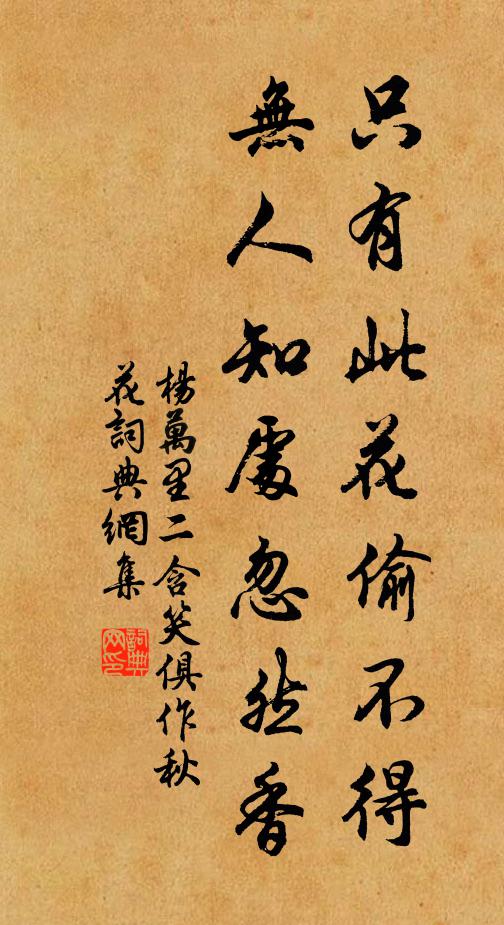 只有此花偷不得
無人知處忽然香
楊萬里二含笑俱作秋
花詞典網集
詞典
网印